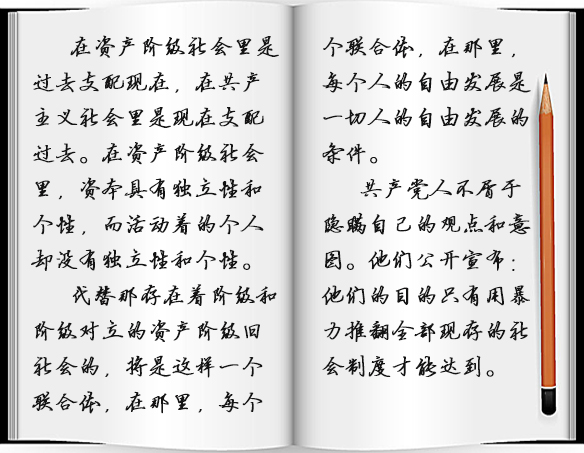 在资产阶级社会里是
过去支配现在，在共产
主义社会里是现在支配
过去。在资产阶级社会
里，资本具有独立性和
个性，而活动着的个人
却没有独立性和个性。
代替那存在着阶级和
阶级对立的资产阶级旧
社会的，将是这样一个
联合体，在那里，每个
个联合体，在那里，
每个人的自由发展是
一切人的自由发展的
条件。
共产党人不屑于
隐瞒自己的观点和意
图。他们公开宣布：
他们的目的只有用暴
力推翻全部现存的社
会制度才能达到。